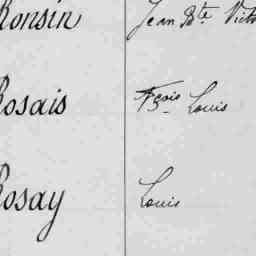 Ronsin Jean Bte Vict
Rosais Fçois Louis
Rosay Louis